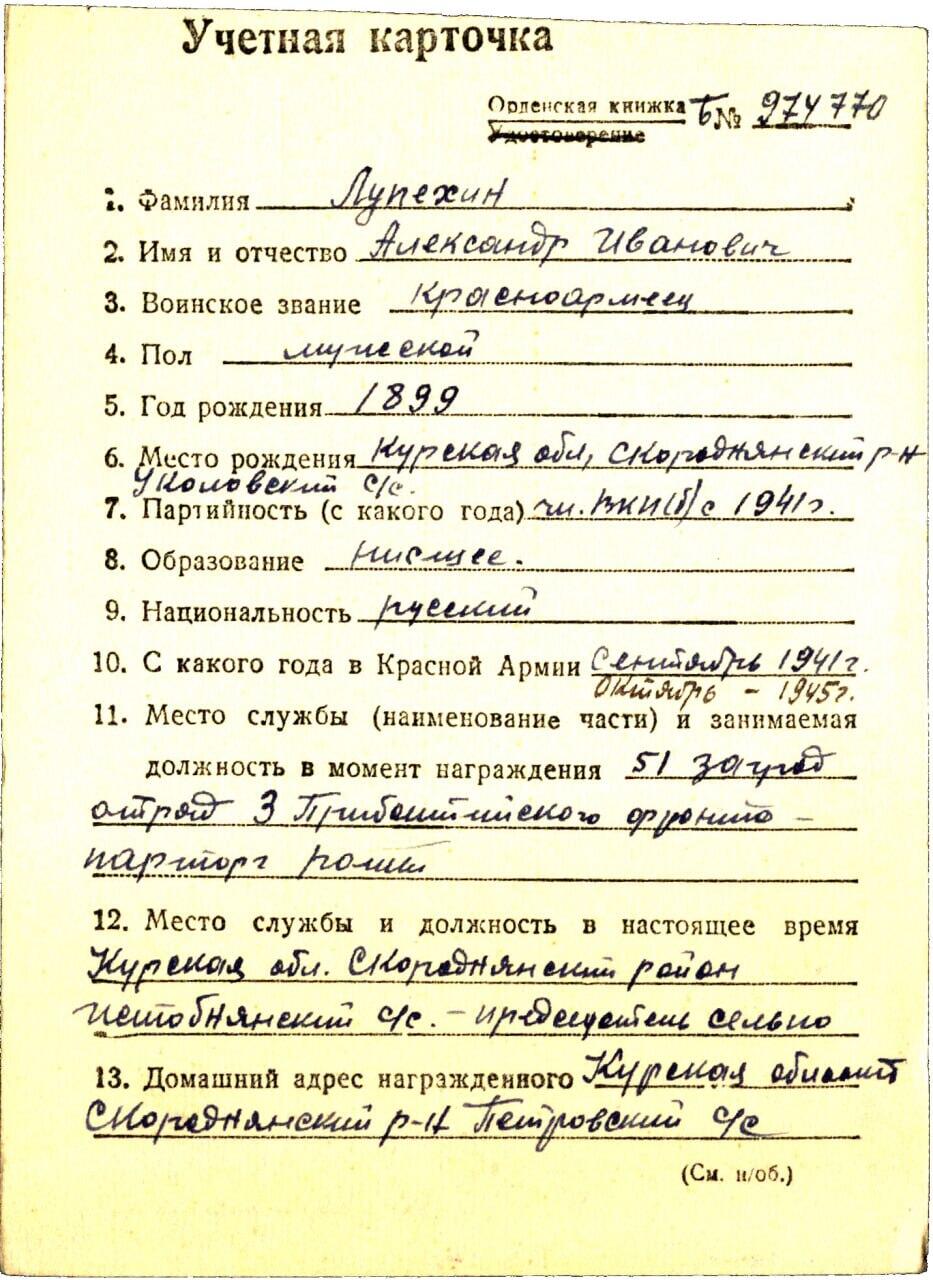 Учетная карточка
Орденская книжка Б№ 974770
Удостоверение
1. Фамилия Лупехин
2. Имя и отчество Александр Иванович
3. Воинское звание Красноармеец
4. Пол мужской
5. Год рождения 1899
6. Место рождения Курская обл, Скороднянский р-н
Уколовский с/с.
7. Партийность (с какого года) чл. ВКП(б) с 1941г.
8. Образование низшее.
9. Национальность русский
10. С какого года в Красной Армии Сентябрь 1941г.
Октябрь - 1945г.
11. Место службы (наименование части) и занимаемая
должность в момент награждения 51 заград
отряд 3 Прибалтийского фронта –
парторг роты
12. Место службы и должность в настоящее время
Курская обл. Скороднянский район
Истобнянский с/с. – председатель сельпо
13. Домашний адрес награжденного Курская область
Скороднянский р-н Петровский с/с
(См. н/об.)